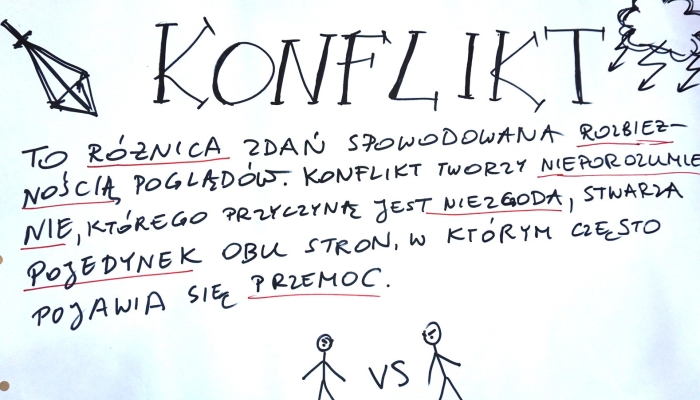 KONFLIKT
TO RÓŻNICA ZDAŃ SPOWODOWANA ROZBIEŻ-
NOŚCIĄ POGLĄDÓW. KONFLIKT TWORZY NIEPOROZUMIE
NIE, KTÓREGO PRZYCZYNĄ JEST NIEZGODA, STWARZA
POJEDYNEK OBU STRON, W KTÓRYM CZĘSTO
POJAWIA SIĘ PRZEMOC.
VS